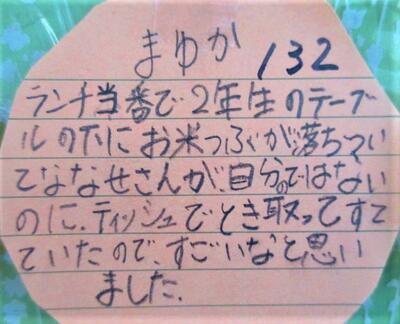 まゆか 132
ランチ当番で2年生のテーブ
ルの下にお米つぶが落ちつい
てななせさんが、自分のではない
のに、ティッシュでとき取ってすて
ていたので、すごいなと思い
ました。